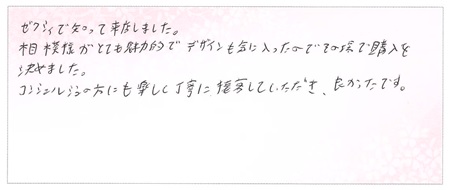 ゼクシィで知って来店しました。
相模様がとても魅力的でデザインも気に入ったのでその場で購入を
決めました。
コンシェルジュの方にも楽しく丁寧に接客していただき、良かったです。